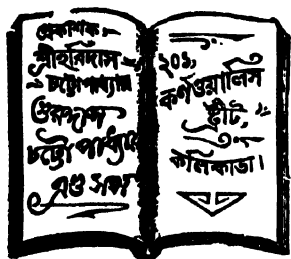 প্রকাশক
শ্রীহরিদাস
চট্টোপাধ্যায়
গুরুদাস
চট্টোপাধ্যায়
এণ্ড সন্স
২০১,
কর্ণওয়ালিস
ষ্ট্রীট,
কলিকাতা।